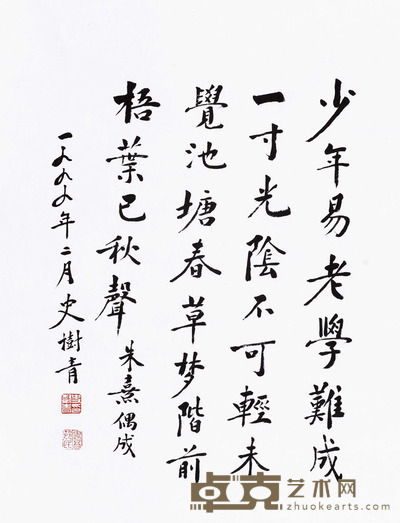 少年易老學難成
一寸光陰不可輕未
覺池塘春草梦階前
梧葉已秋聲
朱熹偶成
一九九九年二月史樹青
卓克艺术网
zhuokearts.com